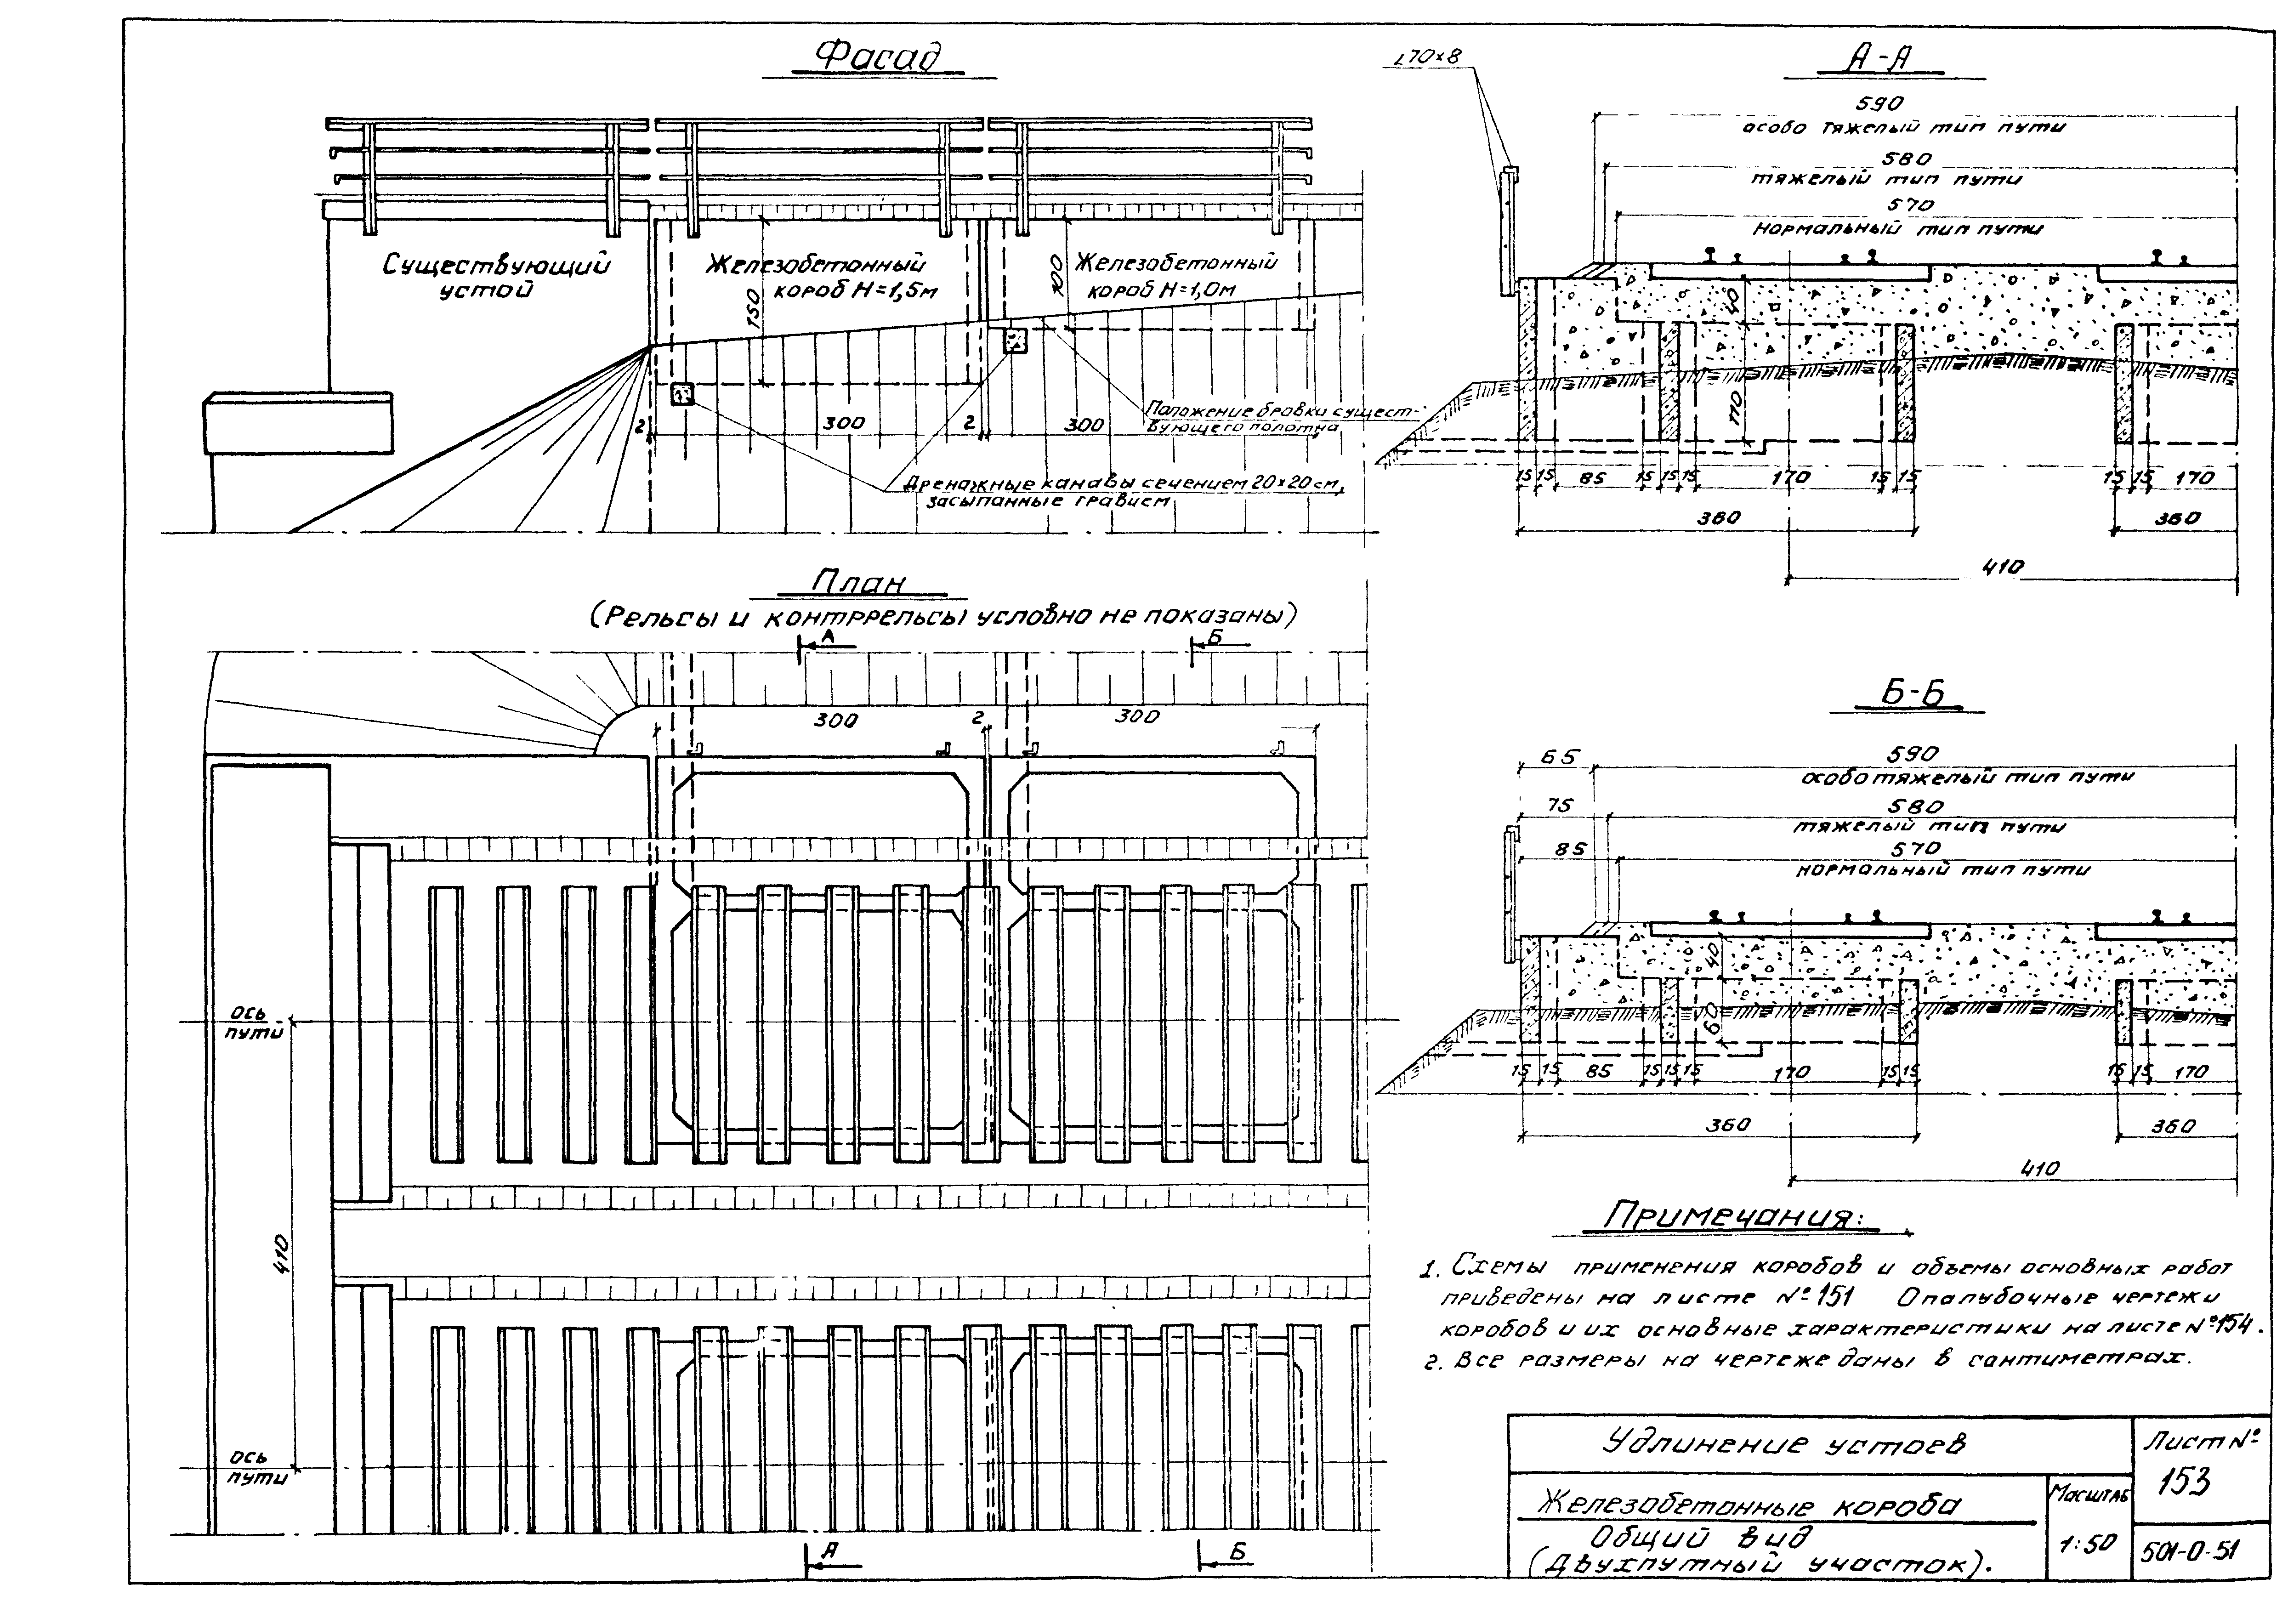 Фасад
Существующий
устой
Железобетонный
короб H=1,5м
Железобетонный
короб H=1,0м
150
100
2
300
2
300
Положение бровки сущест-
вующего полотна
Дренажные канавы сечением 20×20см,
засыпанные гравием
План
(Рельсы и контррельсы условно не показаны)
А
Б
300
2
300
ось
пути
410
ось
пути
А
Б
∠70×8
А-А
590
особо тяжелый тип пути
580
тяжелый тип пути
570
нормальный тип пути
40
110
15 15 85 15 15 15 170 15 15 15 15 170
360 360
410
Б-Б
65 590
особо тяжелый тип пути
75 580
тяжелый тип пути
85 570
нормальный тип пути
40
60
15 15 85 15 15 15 170 15 15 15 15 170
360 360
410
Примечания:
1. Схемы применения коробов и объемы основных работ
приведены на листе №151 Опалубочные чертежи
коробов и их основные характеристики на листе №154.
2. Все размеры на чертеже даны в сантиметрах.
Удлинение устоев
Лист №
153
Железобетонные короба
Общий вид
(Двухпутный участок).
Масштаб
1:50
501-0-51